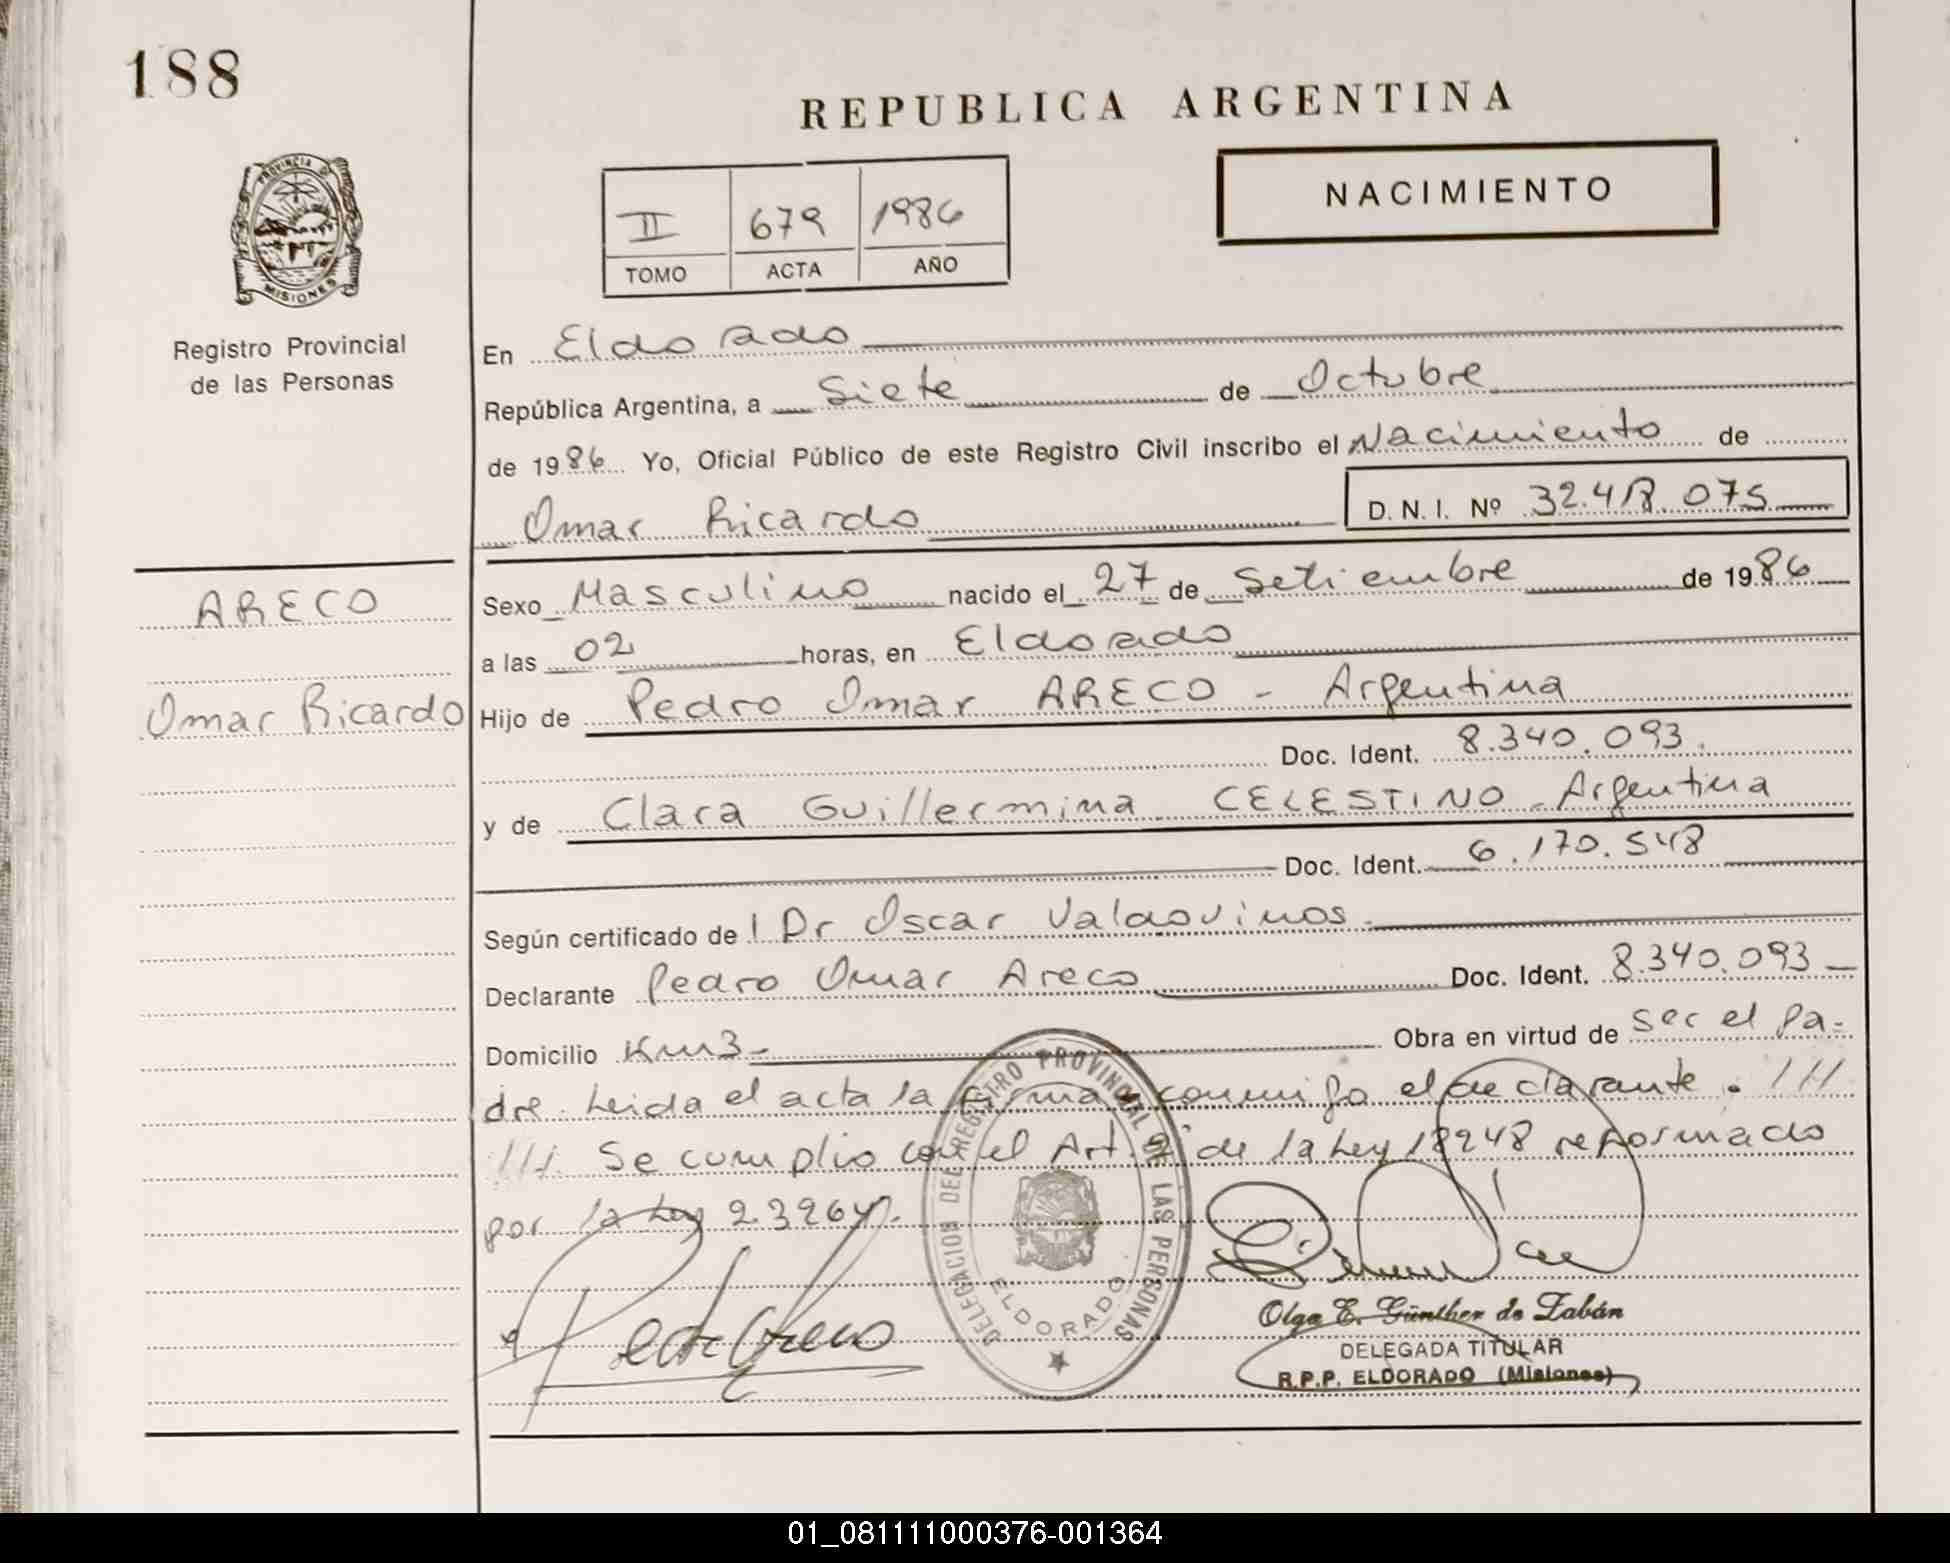 188
REPUBLICA ARGENTINA
PROVINCIA DE
MISIONES
II 679 1986
TOMO ACTA AÑO
NACIMIENTO
Registro Provincial
de las Personas
En Eldorado
República Argentina, a Siete de Octubre
de 1986 Yo, Oficial Público de este Registro Civil inscribo el Nacimiento de
Omar Ricardo D.N.I. Nº
ARECO
Omar Ricardo
Sexo Masculino nacido el 27 de Setiembre de 1986
a las 02 horas, en Eldorado
Hijo de Pedro Omar ARECO - Argentina
Doc. Ident. 8.340.093.
y de Clara Guillermina CELESTINO - Argentina
Doc. Ident. 6.170.548
Según certificado de l Dr Oscar Valdovinos.
Declarante Pedro Omar Areco Doc. Ident. 8.340.093
Domicilio Km3- Obra en virtud de ser el pa-
dre. Leida el acta la firma conmigo el declarante. ///
/// Se cumplio con el Art. de la Ley 18248 reformado
por la Ley 23264.
DELEGACION DEL REGISTRO PROVINCIAL DE LAS PERSONAS
ELDORADO
Olga E. Günther de Zabán
DELEGADA TITULAR
R.P.P. ELDORADO (Misiones)
01_081111000376-001364